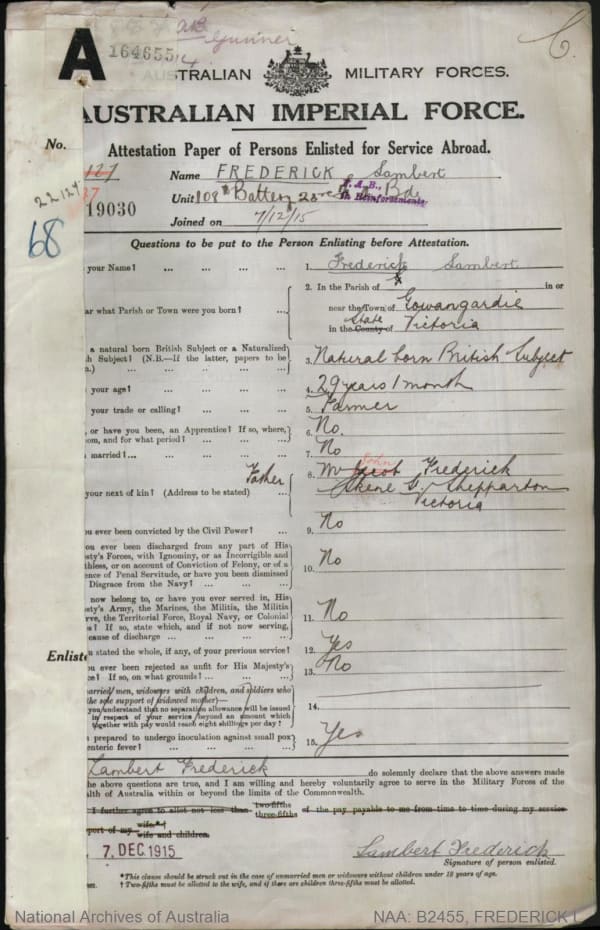 A
164655
Gunner
AUSTRALIAN MILITARY FORCES.
AUSTRALIAN IMPERIAL FORCE.
No.
Attestation Paper of Persons Enlisted for Service Abroad.
127
Name FREDERICK Lambert
22127
37
19030
Unit 108th Battery
Reinforcements
Joined on 7/12/15
68
Questions to be put to the Person Enlisting before Attestation.
your Name? ... ... ... ... 1. Frederick Lambert
2. In the Parish of in or
ar what Parish or Town were you born? ... near the Town of Gowangardie
in the County of State Victoria
a natural born British Subject or a Naturalized
sh Subject? (N.B.—If the latter, papers to be
3. Natural born British Subject
your age? ... ... ... ... 4. 29 years 1 month
your trade or calling? ... ... ... 5. Farmer
, or have you been, an Apprentice? If so, where,
om, and for what period? ... ... ... 6. No.
married? ... ... ... ... 7. No
Father
8. Mr Jacob John Frederick
your next of kin? (Address to be stated) ... Skene St Shepparton
Victoria
u ever been convicted by the Civil Power? ... 9. No
ou ever been discharged from any part of His
sty's Forces, with Ignominy, or as Incorrigible and
thless, or on account of Conviction of Felony, or of a
ence of Penal Servitude, or have you been dismissed
Disgrace from the Navy? ... ... ...
10. No
now belong to, or have you ever served in, His
sty's Army, the Marines, the Militia, the Militia
rve, the Territorial Force, Royal Navy, or Colonial
s? If so, state which, and if not now serving,
cause of discharge ... ... ... ...
11. No
u stated the whole, if any, of your previous service? 12. Yes
Enliste
ou ever been rejected as unfit for His Majesty's
ce? If so, on what grounds? ... ... ... 13. No
married men, widowers with children, and soldiers who
the sole support of widowed mother)—
you understand that no separation allowance will be issued
in respect of your service beyond an amount which
together with pay would reach eight shillings per day?
14.
prepared to undergo inoculation against small pox
enteric fever? ... ... ... ... 15. Yes
Lambert Frederick do solemnly declare that the above answers made
he above questions are true, and I am willing and hereby voluntarily agree to serve in the Military Forces of the
alth of Australia within or beyond the limits of the Commonwealth.
I further agree to allot not less than two-fifths three-fifths of the pay payable to me from time to time during my service
port of my wife*† wife and children.
7. DEC 1915
Lambert Frederick
Signature of person enlisted.
*This clause should be struck out in the case of unmarried men or widowers without children under 18 years of age.
† Two-fifths must be allotted to the wife, and if there are children three-fifths must be allotted.
National Archives of Australia
NAA: B2455, FREDERICK L